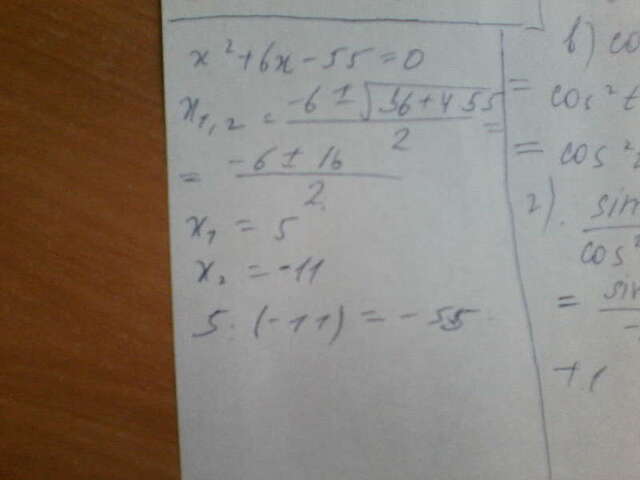 x² + 6x - 55 = 0
x₁,₂ = (-6 ± √(36 + 4 55))/2 =
= (-6 ± 16)/2
x₁ = 5
x₂ = -11
5 · (-11) = -55
в) co
= cos² t
= cos² t
2). sin
cos²
= sin
+1